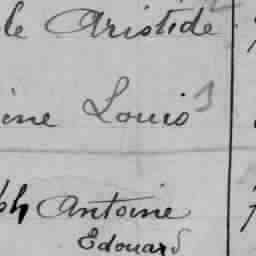 le Aristide
ine Louis
ph Antoine
Edouard